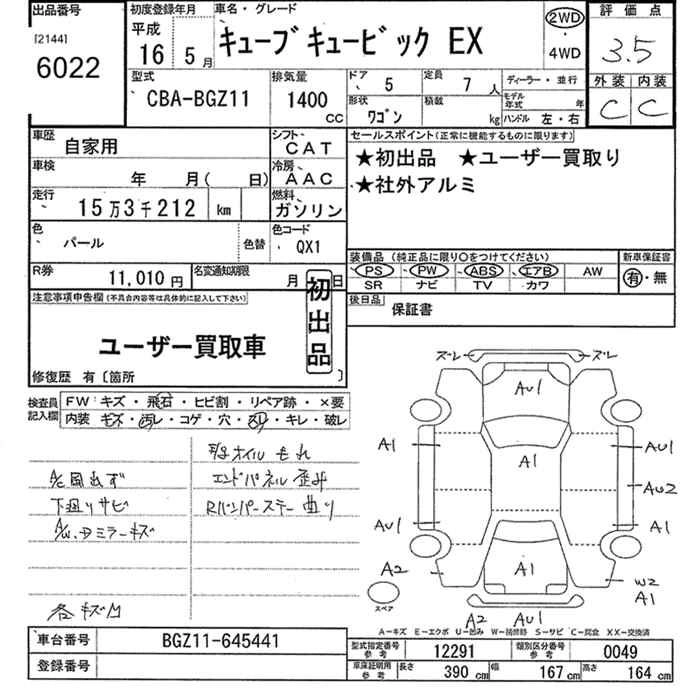 出品番号
[2144]
6022
初度登録年月
平成
16年 5月
車名・グレード
キューブキュービック EX
2WD
・
4WD
評価点
3.5
外装 内装
C C
型式
CBA-BGZ11
排気量
1400 CC
ドア 5
定員 7人
ディーラー・並行
形状 ワゴン
積載 kg
モデル年式 年
ハンドル 左・右
車歴 自家用
シフト CAT
車検 年 月( 日)
冷房 AAC
走行 15万3千212 km
燃料 ガソリン
色 パール 色替
色コード QX1
R券 11,010円
名変通知期限 月 日
セールスポイント(正常に機能するものに限ります)
★初出品 ★ユーザー買取り
★社外アルミ
装備品(純正品に限り〇をつけてください)
PS PW ABS エアB AW
SR ナビ TV カワ
新車保証書
有・無
後日品 保証書
注意事項申告欄(不具合内容等は具体的に記入して下さい)
初出品
ユーザー買取車
修復歴 有〔箇所 〕
検査員記入欄
FW:キズ・飛石・ヒビ割・リペア跡・×要
内装:キズ・汚レ・コゲ・穴・スリ・キレ・破レ
オイルもれ
A/C風出ず
エンドパネル歪み
下廻りサビ
Rバンパーステー曲り
A/W.ドアミラーキズ
各キズ凹
ズレ ズレ
AU1
A1 A1 AU1
AU2
AU1 A1
A2 A1 W2
A1
スペア
A2 AU1
A-キズ E-エクボ U-凹み W-補修跡 S-サビ C-腐食 XX-交換済
車台番号 BGZ11-645441
登録番号
型式指定番号 参考 12291
類別区分番号 参考 0049
車庫証明用 参考 長さ 390 cm 幅 167 cm 高さ 164 cm